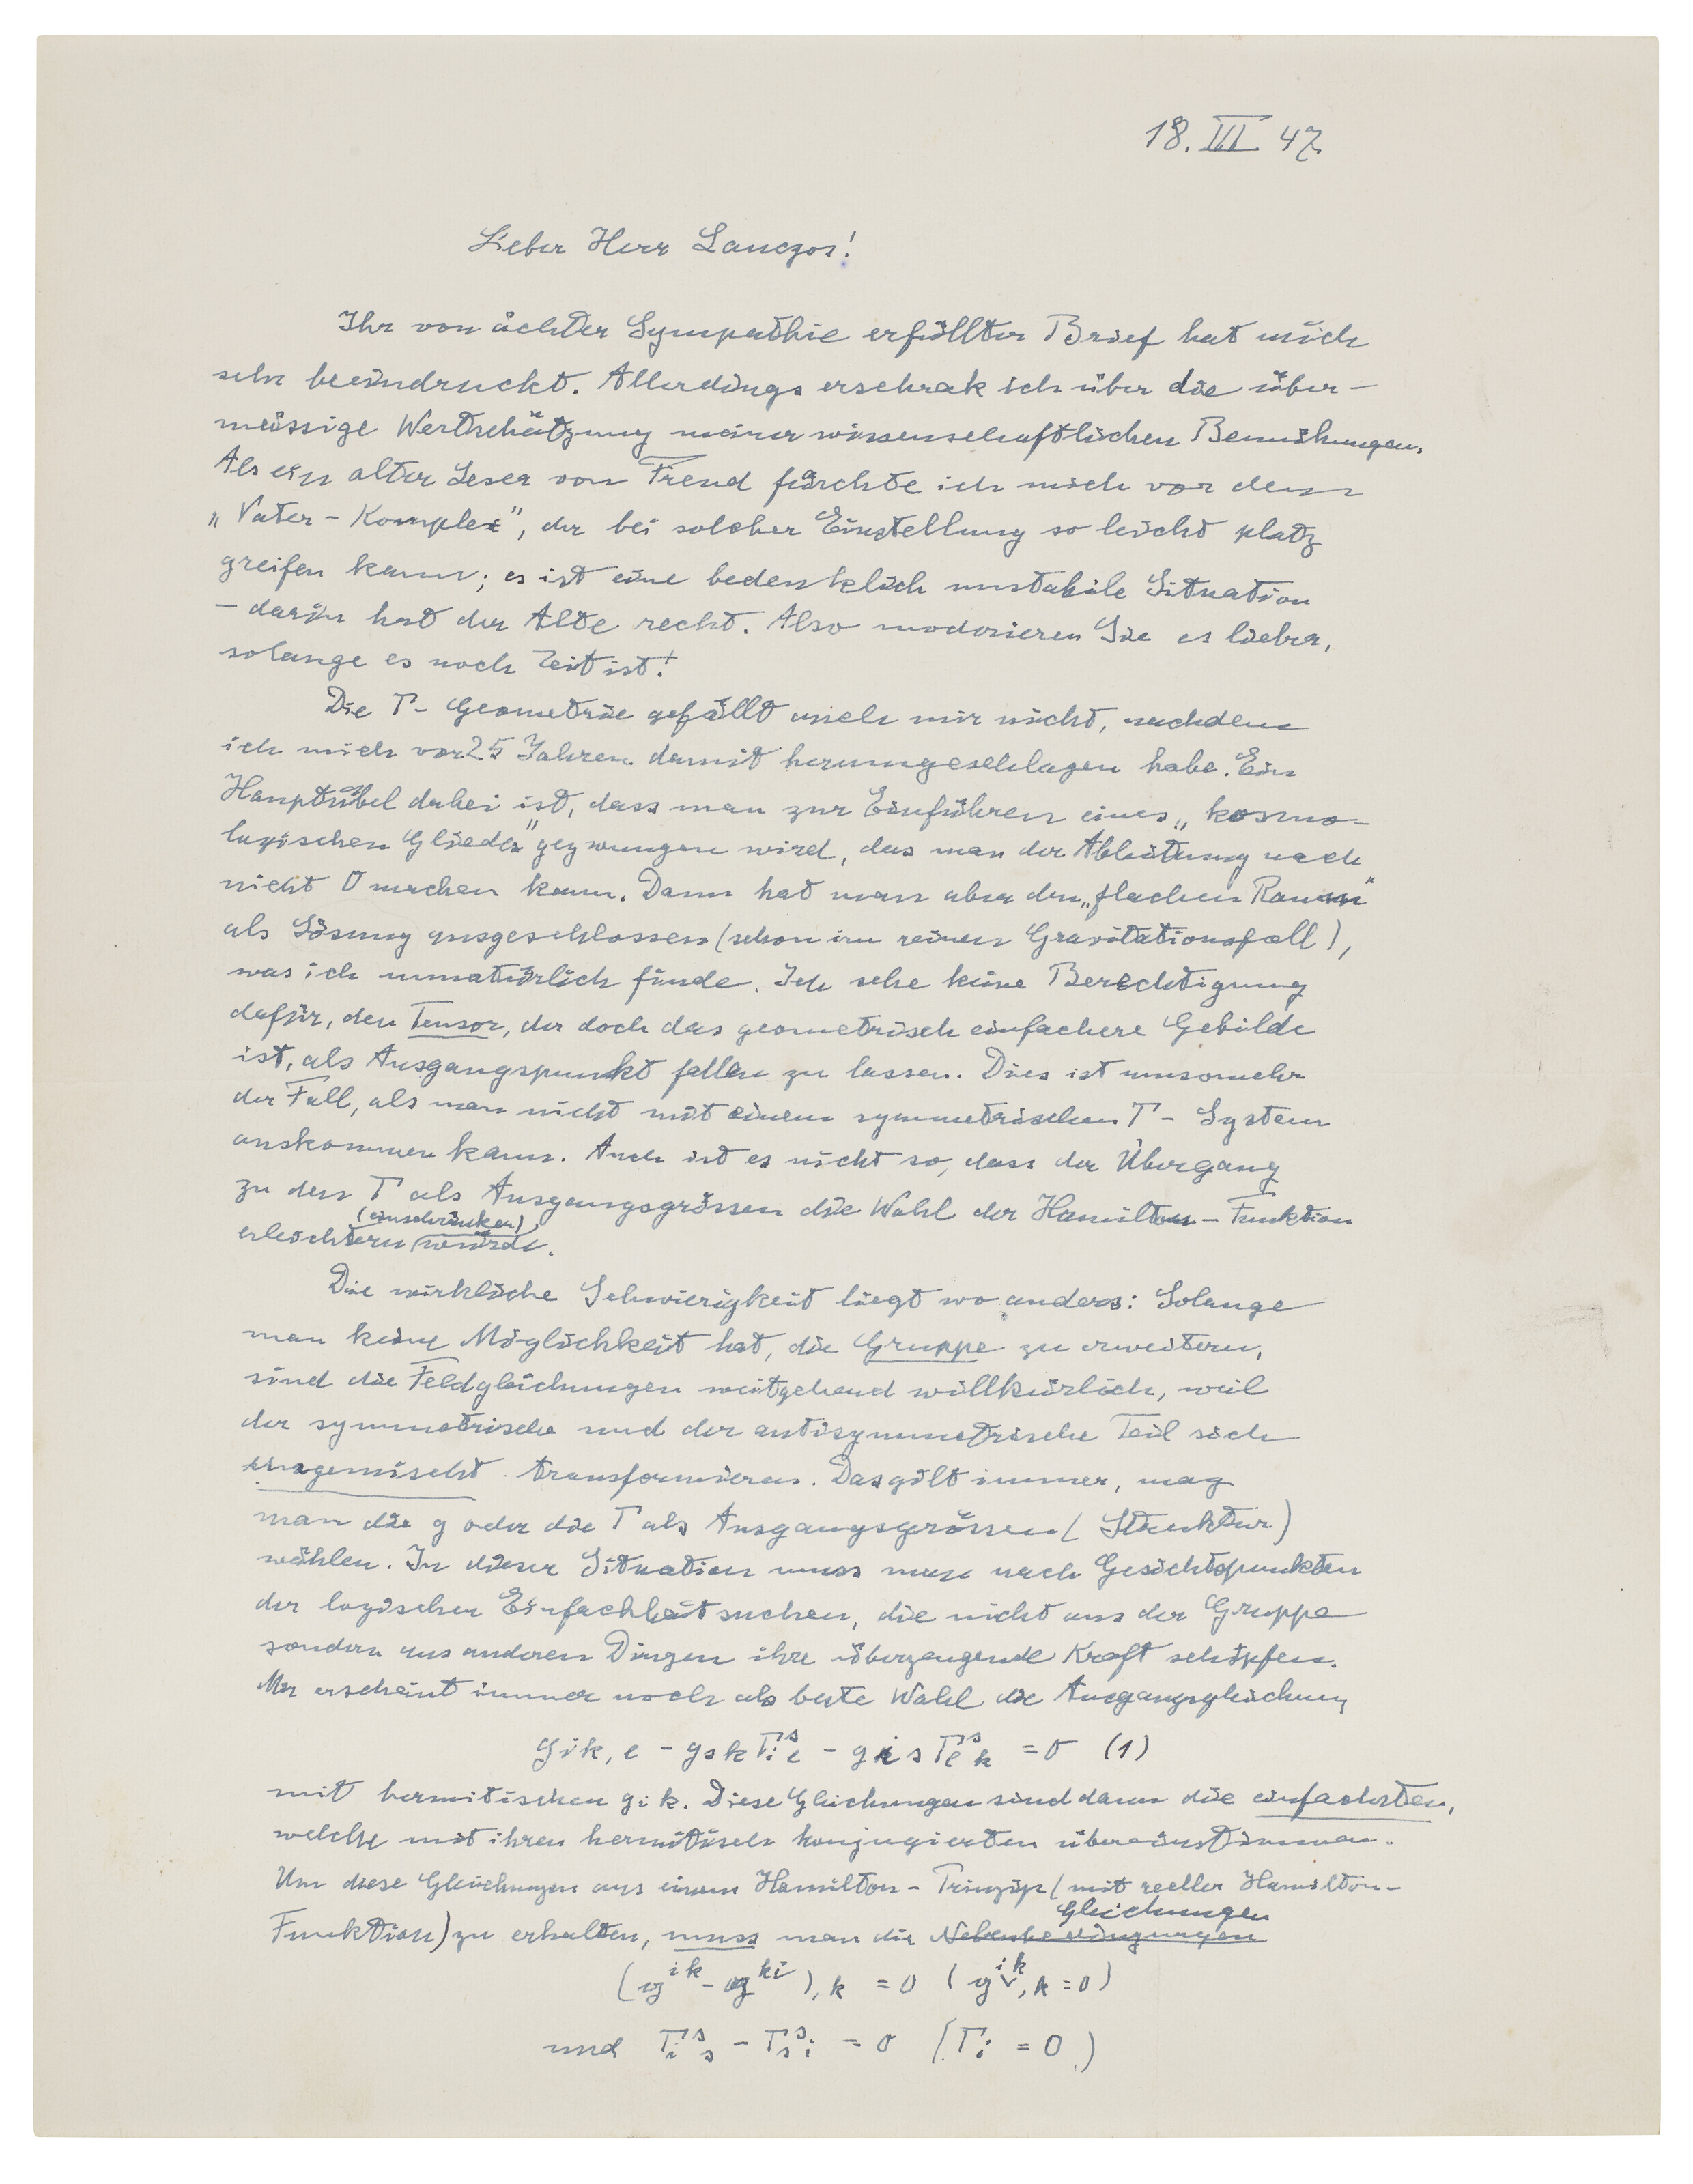 18. III 47.
Lieber Herr Lanczos!
Ihr von ächter Sympathie erfüllter Brief hat mich
sehr beeindruckt. Allerdings erschrak ich über die über-
mässige Wertschätzung meiner wissenschaftlichen Bemühungen.
Als ein alter Leser von Freud fürchte ich mich vor dem
„Vater-Komplex", der bei solcher Einstellung so leicht platz
greifen kann; es ist eine bedenklich unstabile Situation
- darin hat der Alte recht. Also moderieren Sie es lieber,
solange es noch Zeit ist!
Die Γ-Geometrie gefällt auch mir nicht, nachdem
ich mich vor 25 Jahren damit herumgeschlagen habe. Ein
Hauptübel dabei ist, dass man zur Einführen eines „kosmo-
logischen Glieds" gezwungen wird, das man der Ableitung nach
nicht 0 machen kann. Dann hat man aber den „flachen Raum"
als Lösung ausgeschlossen (schon im reinen Gravitationsfall),
was ich unnatürlich finde. Ich sehe keine Berechtigung
dafür, den Tensor, der doch das geometrisch einfachere Gebilde
ist, als Ausgangspunkt fallen zu lassen. Dies ist umsomehr
der Fall, als man nicht mit einem symmetrischen Γ-System
auskommen kann. Auch ist es nicht so, dass der Übergang
zu den Γ als Ausgangsgrössen die Wahl der Hamilton-Funktion
erleichtern (einschränken) würde.
Die wirkliche Schwierigkeit liegt wo anders: Solange
man keine Möglichkeit hat, die Gruppe zu erweitern,
sind die Feldgleichungen weitgehend willkürlich, weil
der symmetrische und der antisymmetrische Teil sich
ungemischt transformieren. Das gilt immer, mag
man die g oder die Γ als Ausgangsgrössen (Struktur)
wählen. In dieser Situation muss man nach Gesichtspunkten
der logischen Einfachheit suchen, die nicht aus der Gruppe
sondern aus anderen Dingen ihre überzeugende Kraft schöpfen.
Mir erscheint immer noch als beste Wahl die Ausgangsgleichung
g_{ik,l} - g_{sk} Γ_i^s_l - g_{is} Γ_l^s_k = 0 (1)
mit hermitischen g_{ik}. Diese Gleichungen sind dann die einfachsten,
welche mit ihren hermitisch konjugierten übereinstimmen.
Um diese Gleichungen aus einem Hamilton-Prinzip (mit reeller Hamilton-
Funktion) zu erhalten, muss man die Nebenbedingungen Gleichungen
(g^{ik} - g^{ki})_{,k} = 0 (g^{ik}_{∨,k} = 0)
und Γ_i^s_s - Γ_s^s_i = 0 (Γ_i = 0)